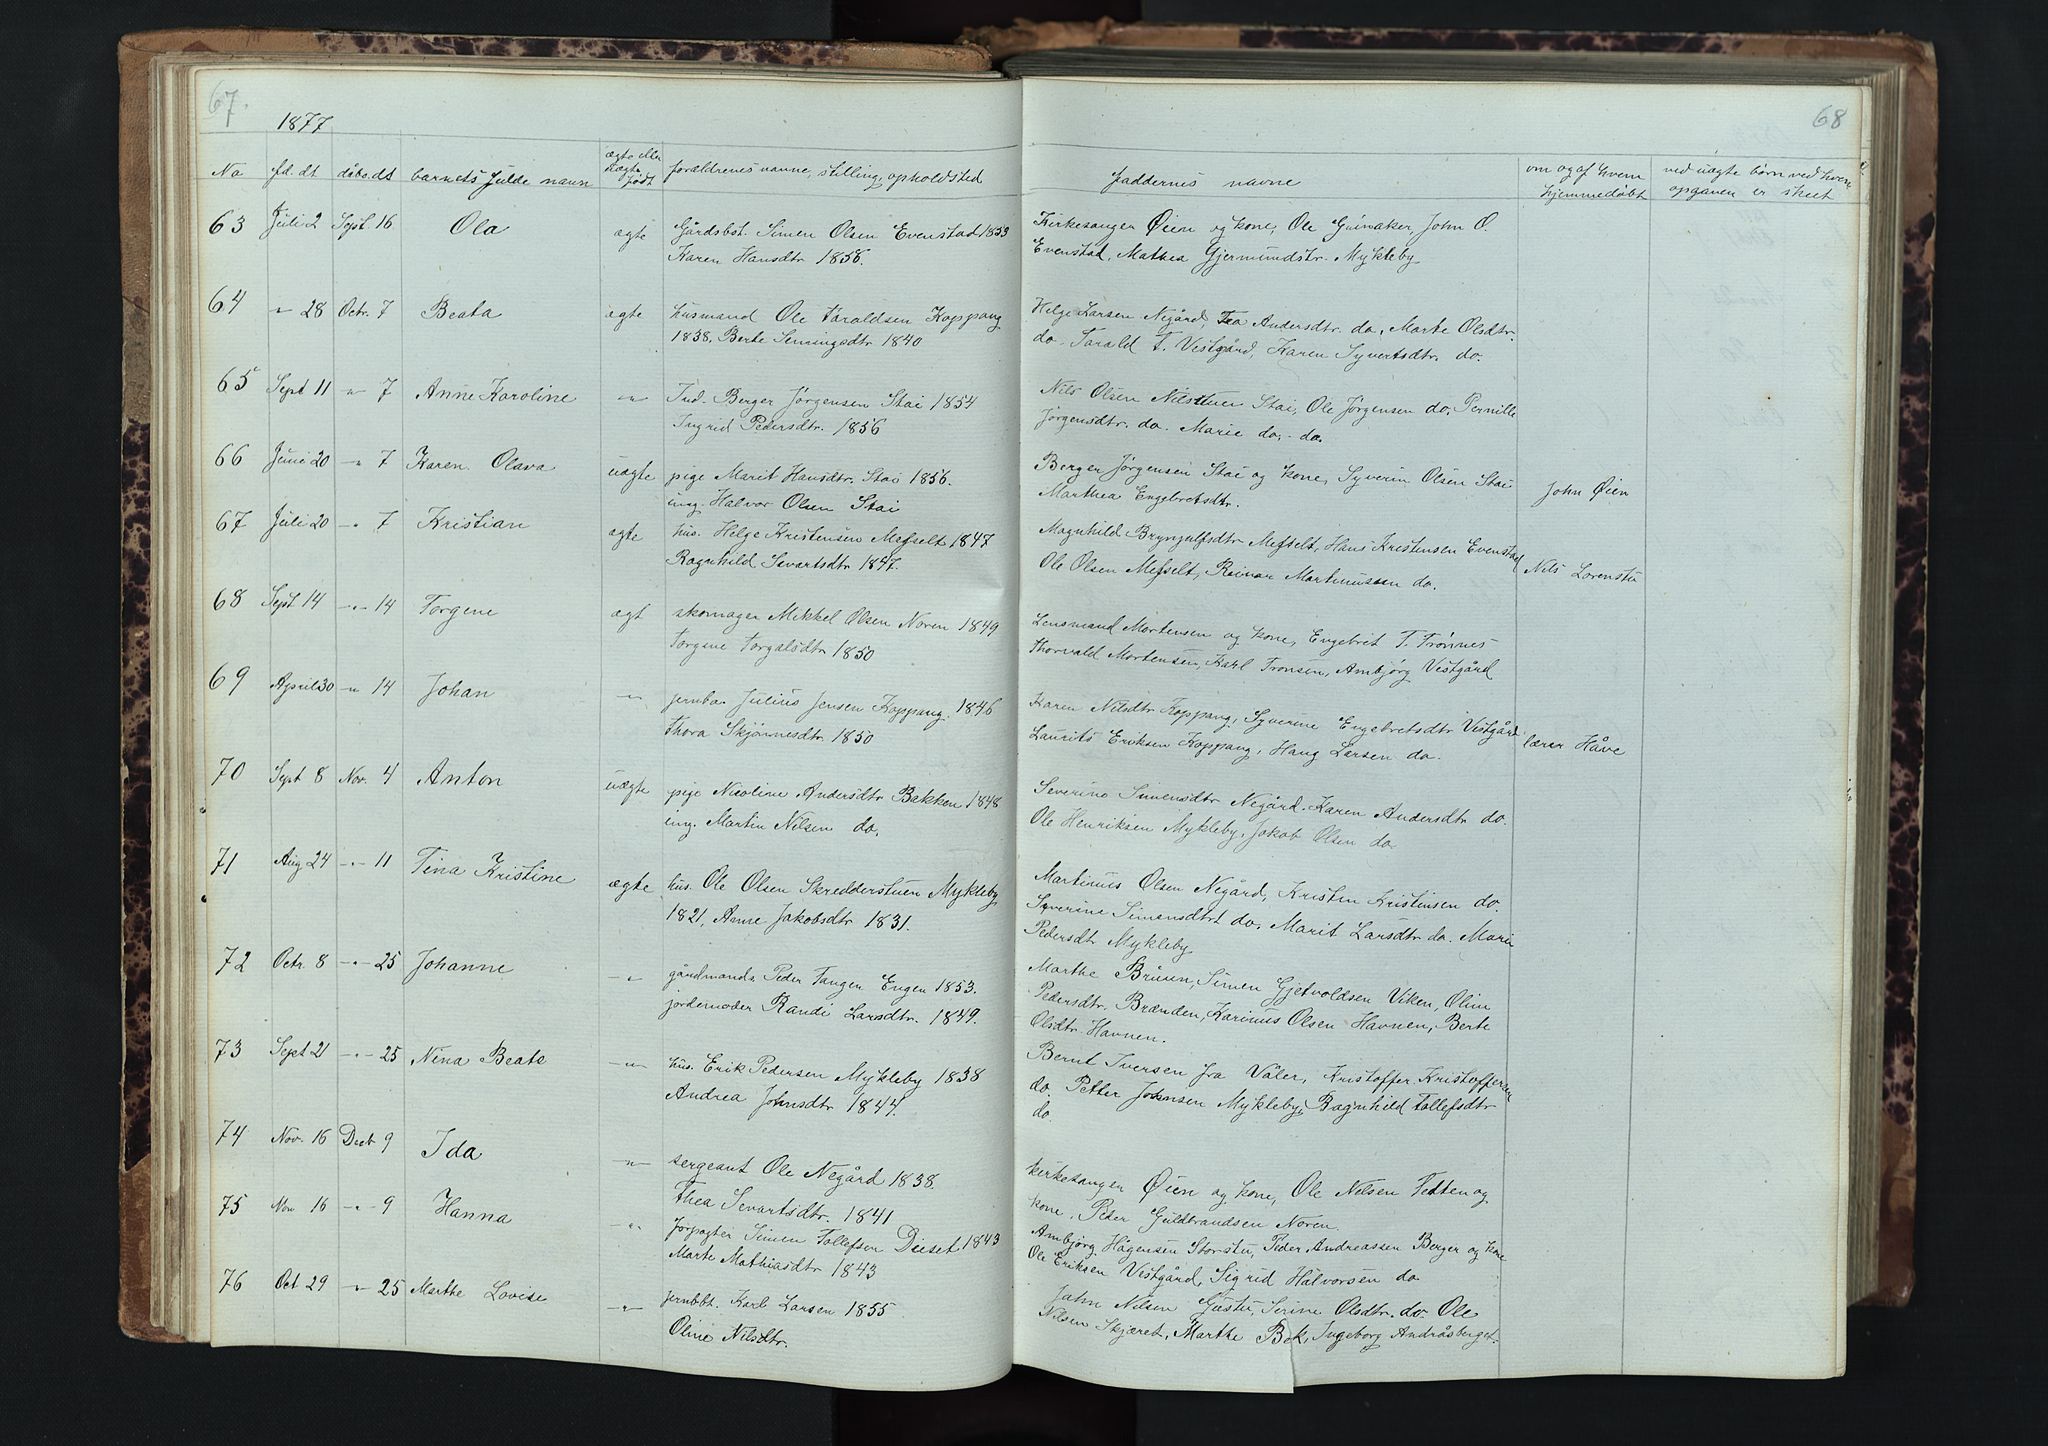 67.
1877
No fd. dt dåbs.dt barnets fulde navn ægte eller uægte født forældrenes navne, stilling, opholdsted
63 Juli 2 Sept. 16 Ola ægte Gårdsbst. Simen Olsen Evenstad 1853
Karen Hansdtr 1856.
64 -"- 28 Octr. 7 Beata ægte husmand Ole Taraldsen Koppang
1838. Berte Simmingsdtr 1840
65 Sept 11 -"- 7 Anne Karoline -"- Ind. Berger Jørgensen Stai 1854
Ingrid Pedersdtr. 1856
66 Juni 20 -"- 7 Karen Olava uægte pige Marit Hansdtr. Stai 1856.
ung. Halvor Olsen Stai
67 Juli 20 -"- 7 Kristian ægte hus. Helge Kristensen Mefselt 1847
Ragnhild Sevartsdtr 1847.
68 Sept 14 -"- 14 Torgene ægt skomager Mikkel Olsen Noren 1849
Torgine Torgalsdtr 1850
69 April 30 -"- 14 Johan -"- jernba. Julius Jensen Koppang. 1846
Thora Skjønnesdtr 1850
70 Sept 8 Nov. 4 Anton uægte pige Nicoline Andersdtr Bakken 1848
ung. Martin Nilsen do.
71 Aug 24 -"- 11 Tina Kristine ægte hus. Ole Olsen Skredderstuen Mykleby
1821, Anne Jakobsdtr 1831.
72 Octr. 8 -"- 25 Johanne -"- gårdmands Peder Tangen Engen 1853.
jordemoder Randi Larsdtr. 1849.
73 Sept 21 -"- 25 Nina Beate -"- hus. Erik Pedersen Mykleby 1838
Andrea Johnsdtr 1844.
74 Nov. 16 Decb 9 Ida -"- sergeant Ole Negård 1838.
Thea Sevartsdtr. 1841
75 Nov 16 -"- 9 Hanna -"- forpagter Simen Tollefsen Dieset 1843
Marte Mathiasdtr 1843
76 Oct 29 -"- 25 Marthe Lovise -"- jernbbt. Karl Larsen 1855
Oline Nilsdtr.
68
faddernes navne om og af hvem hjemmedøbt ved uægte børn ved hvem opgaven er skeet
Kirkesanger Øien og kone, Ole Guinaker, John O.
Evenstad, Mathea Gjermundstr. Mykleby
Helge Larsen Negård, Tea Andersdtr. do, Marte Olsdtr.
do. Tarald T. Vestgård, Karen Syvertsdtr. do.
Nils Olsen Nilstuen Stai, Ole Jørgensen do. Pernille
Jørgensdtr. do. Marie do. do.
Berger Jørgensen Stai og kone, Syverin Olsen Stai
Marthea Engebretsdtr. John Øien
Magnhild Brynjulfsdtr Mefselt, Hans Kristensen Evenstad
Ole Olsen Mefselt, Reinar Martinussen do. Nils Lorenstu
Lensmand Mortensen og kone, Engebret T. Trønnes
Thorvald Mortensen, Karl Tronsen, Ambjørg Vestgård
Karen Nilsdtr Koppang, Syverine Engebretsdtr Vestgård
Laurits Eriksen Koppang, Haug Larsen do. lærer Håve
Severine Simensdtr Negård. Karen Andersdtr do.
Ole Henriksen Mykleby, Jakob Olsen do.
Martinus Olsen Negård, Kristen Kristinsen do.
Syverine Simensdtrt do. Marit Larsdtr do. Marie
Pedersdtr Mykleby
Marthe Bruun, Simen Gjetvoldsen Viken, Oline
Pedersdtr. Brænden, Karinus Olsen Havnen, Berte
Olsdtr. Havnen.
Bernt Iversen fra Våler, Kristoffer Kristoffersen
do. Petter Johnsen Mykleby, Ragnhild Tollefsdtr
do.
kirkesanger Øien og kone, Ole Nilsen Tetten og
kone, Peder Guldbrandsen Noren.
Ambjørg Hågensen Storstu, Peder Andreassen Berger og kone
Ole Eriksen Vestgård, Sigrid Halvorsen do
John Nilsen Gåstu, Serine Olsdtr. do. Ole
Nilsen Skjæret, Marthe Bek, Ingeborg Andråsberget.